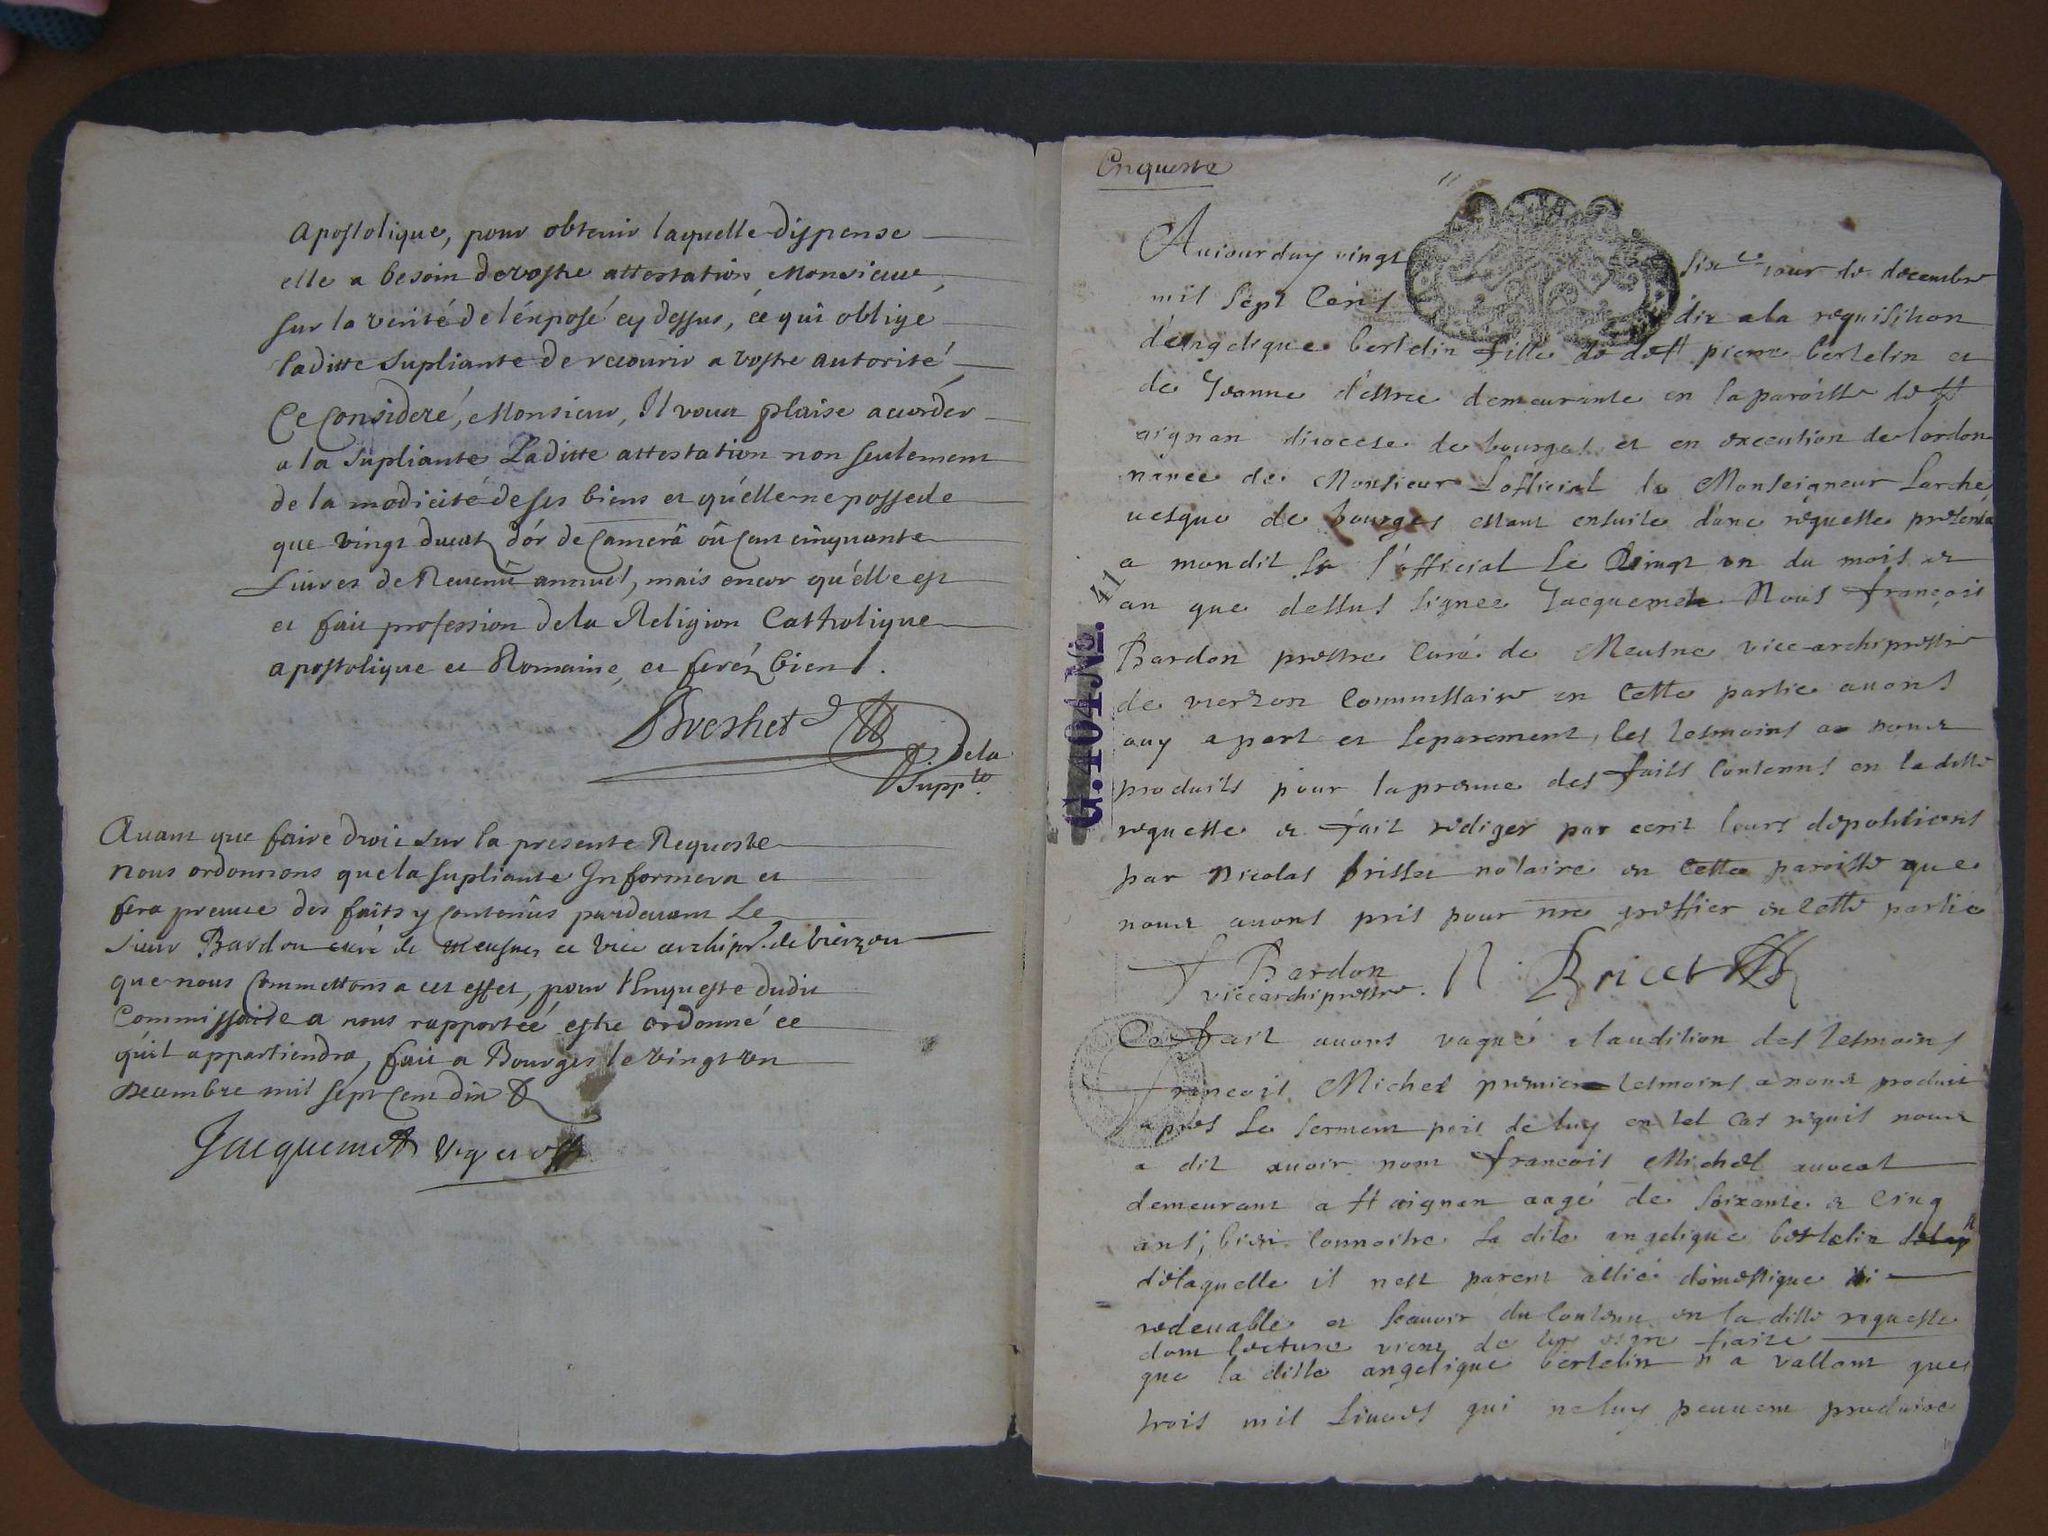 apostolique, pour obtenir laquelle dispense
elle a besoin de vostre attestation Monsieur,
sur la verité de l'éxposé cy dessus, cé qui oblige
laditte supliante de recourir a vostre autorité,
Ce Consideré, Monsieur, Il vous plaise accorder
a la supliante Laditte attestation non seulement
de la modicité de ses biens et qu'elle ne possede
que vingt ducat d'ór de Camerâ oû cent cinquante
Livres de Revenû annuel, mais encor qu'elle est
et fait profession de la Religion Catholique
apostolique et Romaine, et feréz bien.
de la
Supp.te
Auant que faire droit sur la presente Requeste
nous ordonnons que la supliante Informera et
fera preuue des faits y contenûs pardeuant Le
sieur Bardon curé de Meusnes et vice archipr. de Vierzon
que nous Commettons a cet effet, pour l'Enqueste dudit
Commissaire a nous rapportéé estre ordonné ce
qu'il appartiendra, fait a Bourges le vingt un
decembre mil sept cent dix
Jacquemet
Enqueste
Auiourduy vingt sixe iour de decembre
mil sept cens dix a la requisition
d'angelique bertelin fille de deff pierre bertelin et
de Jeanne d'estree demeurante en la paroisse de st
aignan diocese de bourges et en execution de lordon
nance de Monsieur Lofficial de Monseigneur Larche
uesque de bourges estant ensuite d'une requeste presenta
a mondit Sr l'official Le Vingt un du mois et
an que dessus signee Jacquemet Nous françois
Bardon prestre Curé de Meusne vice-archiprestre
de vierzon Commissaire en Cette partie auons
ouy a part et separement, les tesmoins a nous
produits pour la preuue des faits Contenus en la ditte
requeste et fait rediger par ecrit leurs depositions
par Nicolas brisset notaire en Cette paroisse que
nous auons pris pour nre greffier en Cette partie
F Bardon
vicearchiprestre. N. Bricet
Ce fait auons vaqué a laudition des tesmoins
Francois Michel premier tesmoins a nous produit
apres Le serment pris de luy en tel Cas requis nous
a dit auoir nom francois Michel auocat
demeurant a st aignan aagé de soixante et Cinq
ans, bien Connoitre La dite angelique bertelin
de laquelle il nest parent allié domestique ni
redeuable et scauoir du Contenu en la ditte requeste
dont lecture vient de luy estre faite
que la ditte angelique bertelin n'a vallant que
trois mil Liures qui ne luy peuuent produire
G.404.No. 41